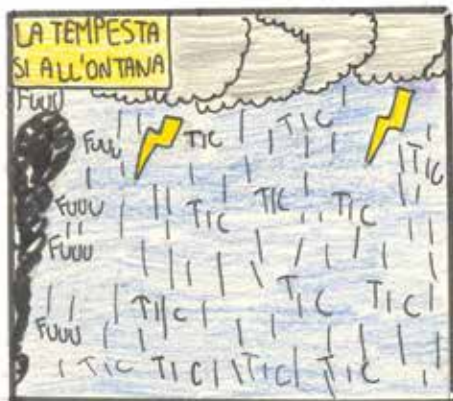 LA TEMPESTA
SI ALL'ONTANA
FUUU
FUUU TIC TIC
TIC
FUUU TIC TIC TIC
FUUU
TIC TIC TIC
FUUU
TIC TIC TIC TIC